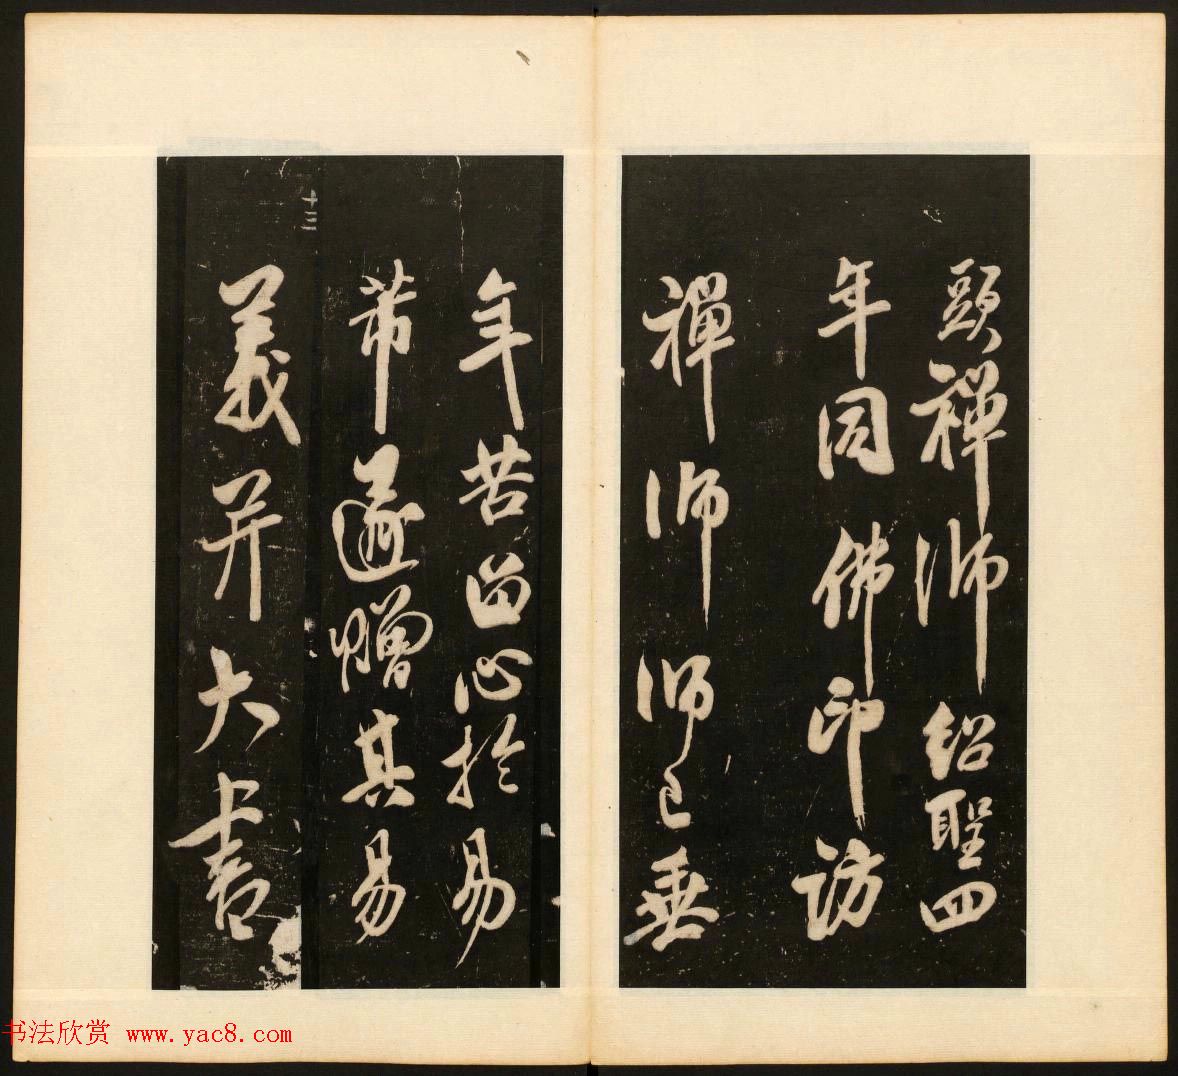 頭禪師紹聖四
年同佛印訪
禪師師已垂
年苦留心於易
十三
帶遂贈其易
義并大書
书法欣赏 www.yac8.com